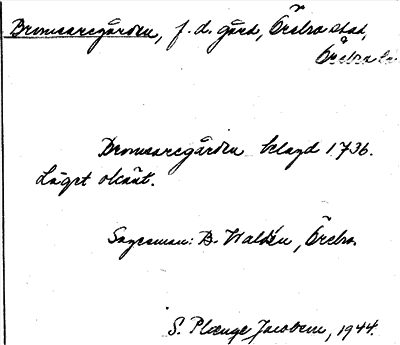 Bromsaregården, f. d. gård, Örebro stad,
Örebro län
Bromsaregården belagd 1736.
Läget okänt.
Sagesman: B. Waldén, Örebro.
S. Plænge Jacobson, 1944.